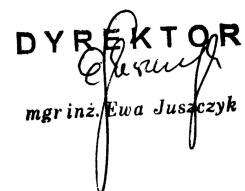 DYREKTOR
mgr inż. Ewa Juszczyk